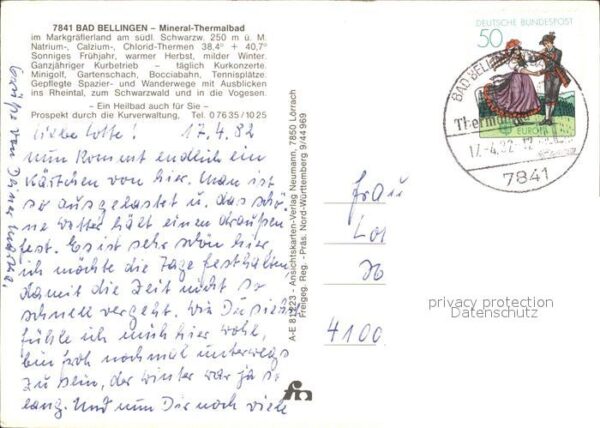 7841 BAD BELLINGEN – Mineral-Thermalbad
im Markgräflerland am südl. Schwarzw. 250 m ü. M.
Natrium-, Calzium-, Chlorid-Thermen 38,4° + 40,7°
Sonniges Frühjahr, warmer Herbst, milder Winter.
Ganzjähriger Kurbetrieb – täglich Kurkonzerte.
Minigolf, Gartenschach, Bocciabahn, Tennisplätze.
Gepflegte Spazier- und Wanderwege mit Ausblicken
ins Rheintal, zum Schwarzwald und in die Vogesen.
– Ein Heilbad auch für Sie –
Prospekt durch die Kurverwaltung, Tel. 0 76 35 / 10 25
Liebe Lotte! 17.4.82
nun kommt endlich ein
Kärtchen von hier. Man ist
so ausgelastet u. das schö-
ne Wetter hält einen draußen
fest. Es ist sehr schön hier,
ich möchte die Tage festhalten
damit die Zeit nicht so
schnell vergeht. Wie Du siehst
fühle ich mich hier wohl,
bin froh nochmal unterwegs
zu sein, der Winter war ja so
lang. Und nun Dir noch viele
Grüße von Deiner
A-E 81 223 - Ansichtskarten-Verlag Neumann, 7850 Lörrach
Freigeg. Reg. -Präs. Nord-Württemberg 9/44 969
DEUTSCHE BUNDESPOST
50
EUROPA
BAD BELLIN
Therm
17.-4.82-12
7841
Frau
Lot
4100
privacy protection
Datenschutz